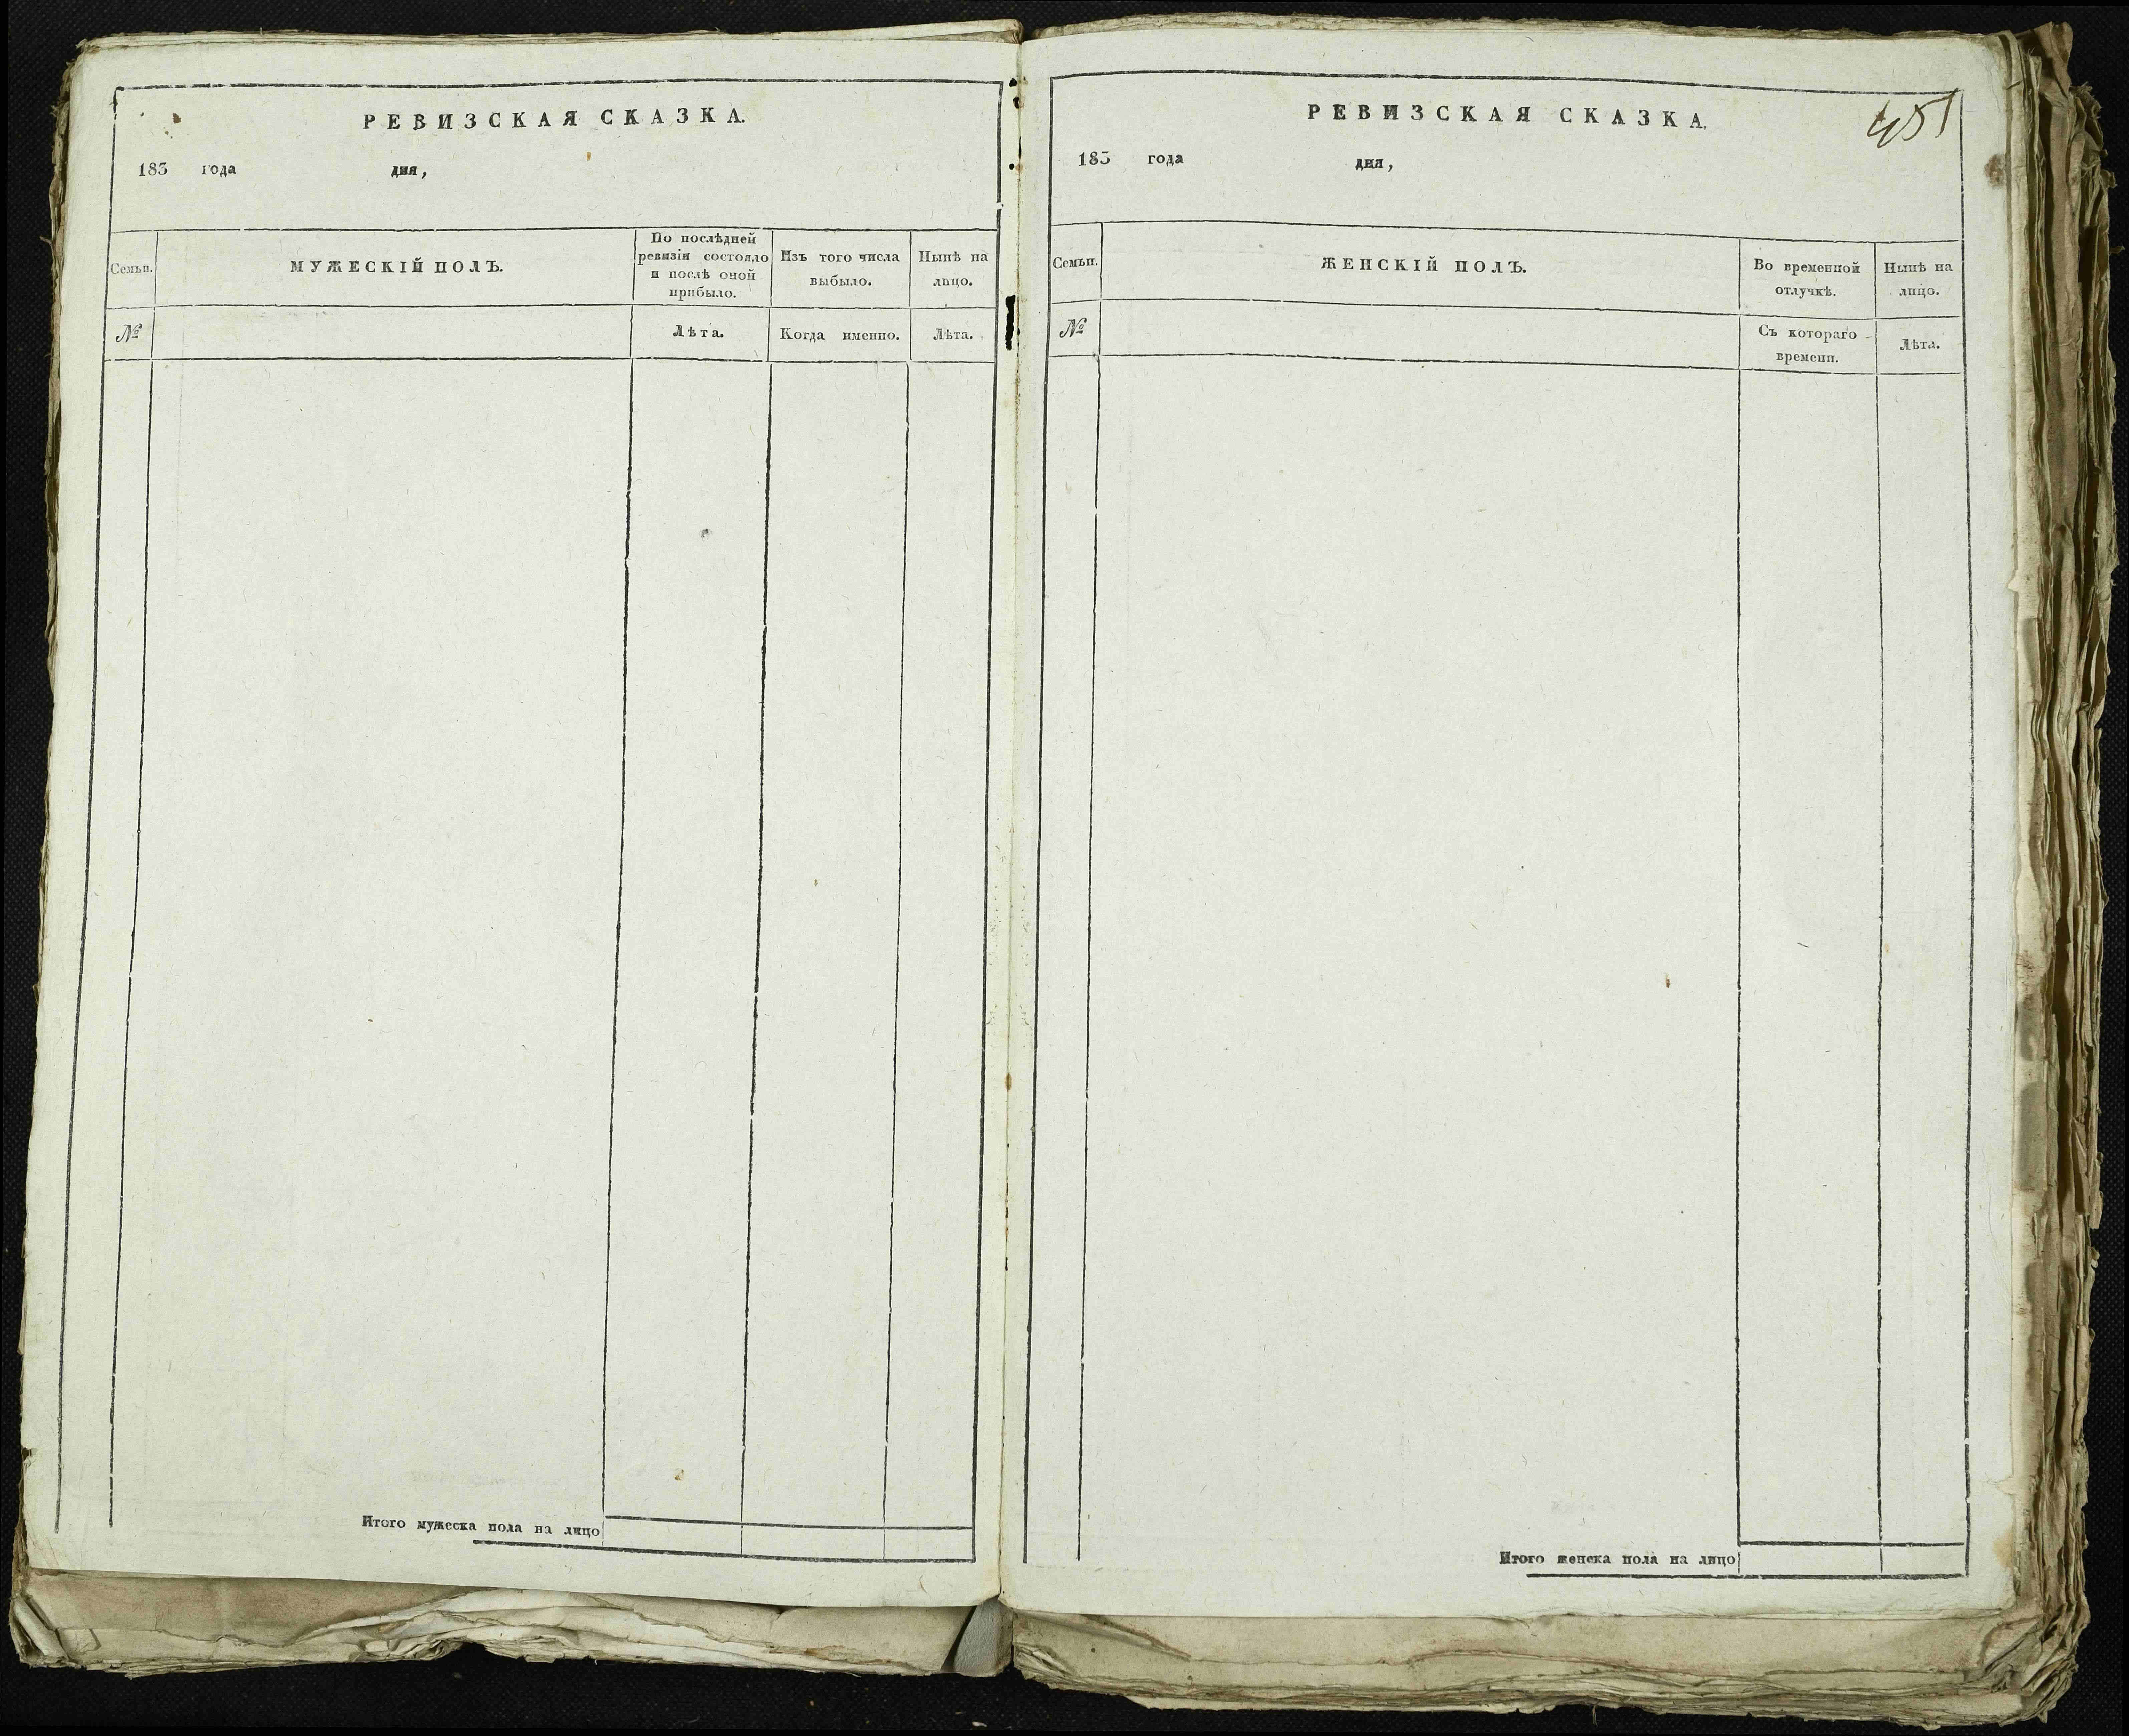 РЕВИЗСКАЯ СКАЗКА.
183 года дня,
Семьи.
МУЖЕСКІЙ ПОЛЪ.
По послѣдней
ревизіи состояло
и послѣ оной
прибыло.
Изъ того числа
выбыло.
Нынѣ на
лицо.
№
Лѣта.
Когда именно.
Лѣта.
Итого мужеска пола на лицо
451
РЕВИЗСКАЯ СКАЗКА.
183 года дня,
Семьи.
ЖЕНСКІЙ ПОЛЪ.
Во временной
отлучкѣ.
Нынѣ на
лицо.
№
Съ котораго
времени.
Лѣта.
Итого женска пола на лицо